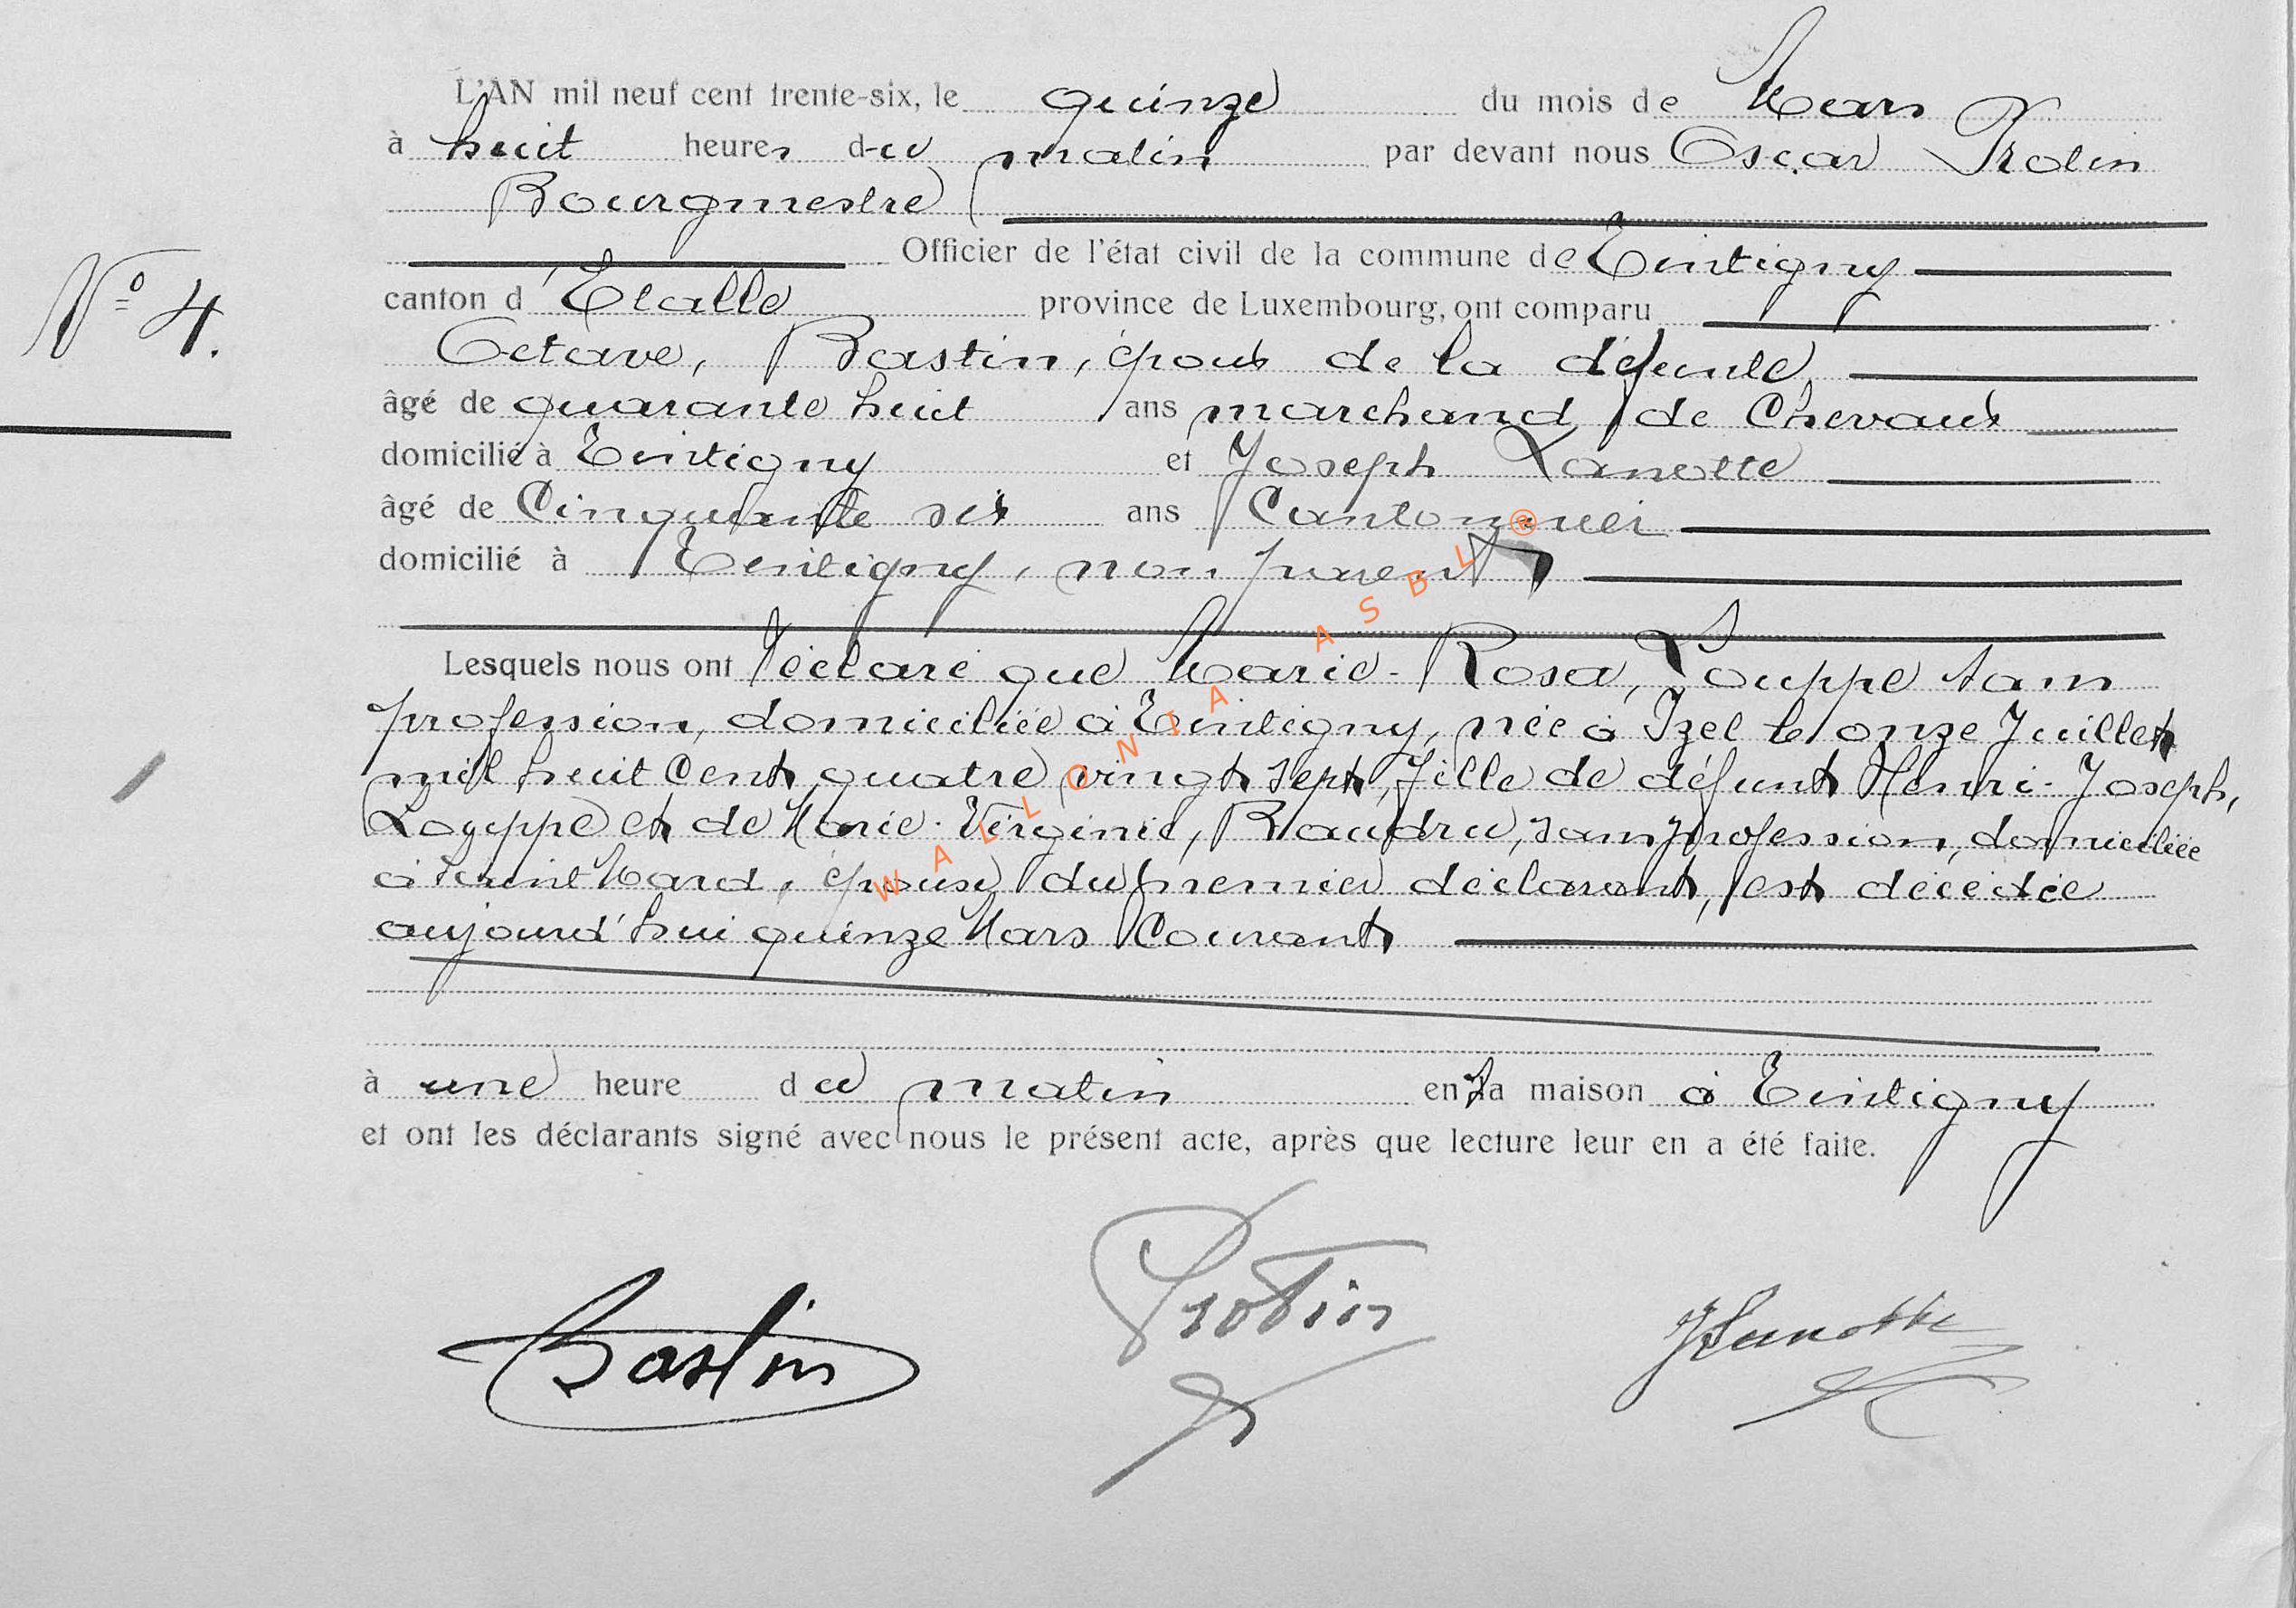 L'AN mil neuf cent trente-six, le quinze du mois de Mars
à huit heures du matin par devant nous Oscar Protin
Bourgmestre
Officier de l'état civil de la commune de Tintigny
canton d'Etalle province de Luxembourg, ont comparu
N° 4.
Octave, Bastin, époux de la défunte
âgé de quarante huit ans marchand de Chevaux
domicilié à Tintigny et Joseph Lanotte
âgé de Cinquante six ans Cantonnier
domicilié à Tintigny, non parent
Lesquels nous ont déclaré que Marie-Rosa, Louppe sans
profession, domiciliée à Tintigny, née à Izel le onze Juillet
mil huit Cent quatre vingt sept, fille de défunt Henri-Joseph,
Louppe et de Marie-Virginie, Baudru, sans profession, domiciliée
à Saint Mard, épouse du premier déclarant, est décédée
aujourd'hui quinze Mars Courant
à une heure du matin en sa maison à Tintigny
et ont les déclarants signé avec nous le présent acte, après que lecture leur en a été faite.
Bastin Protin JLanotte
WALLONIA ASBL ®